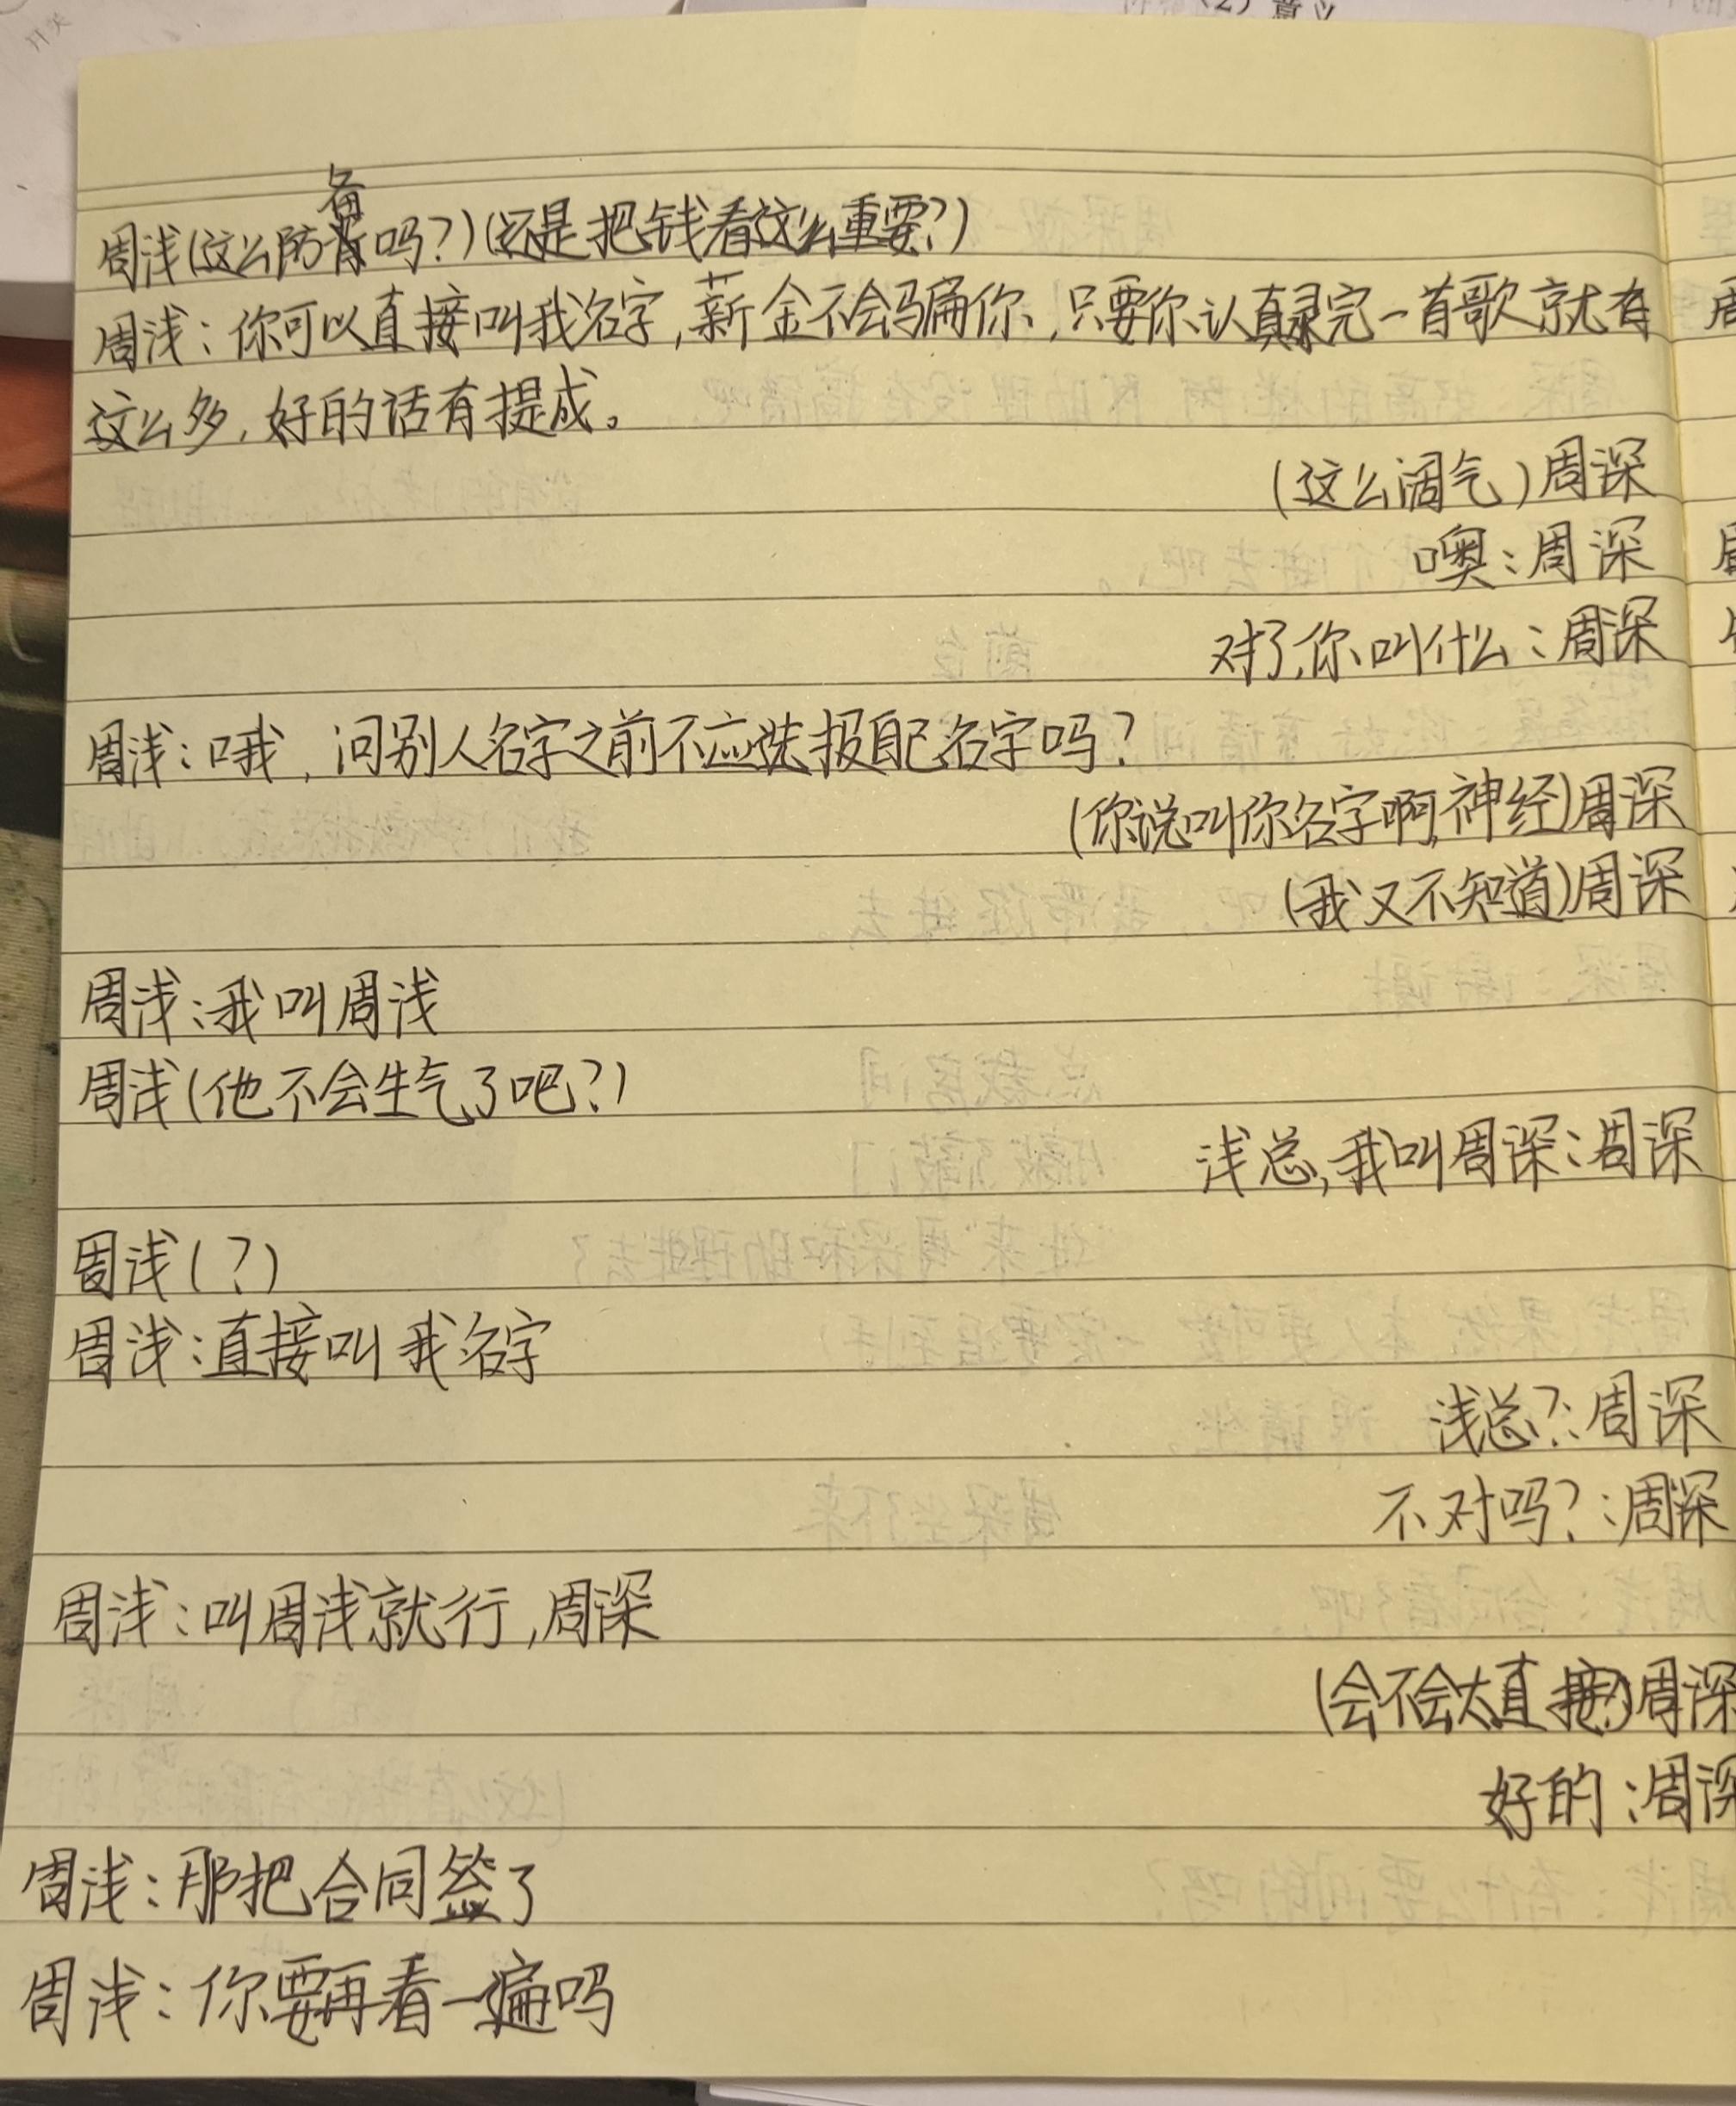 (2) 意义
周浅(这么防备吗?)(还是把钱看这么重要?)
周浅:你可以直接叫我名字,薪金不会骗你,只要你认真录完一首歌就有
这么多,好的话有提成。
(这么阔气)周深
噢:周深
对了,你叫什么:周深
周浅:哦,问别人名字之前不应先报自己名字吗?
(你说叫你名字啊,神经)周深
(我又不知道)周深
周浅:我叫周浅
周浅(他不会生气了吧?)
浅总,我叫周深:周深
周浅(?)
周浅:直接叫我名字
浅总?:周深
不对吗?:周深
周浅:叫周浅就行,周深
(会不会太直接?)周深
好的:周深
周浅:那把合同签了
周浅:你要再看一遍吗